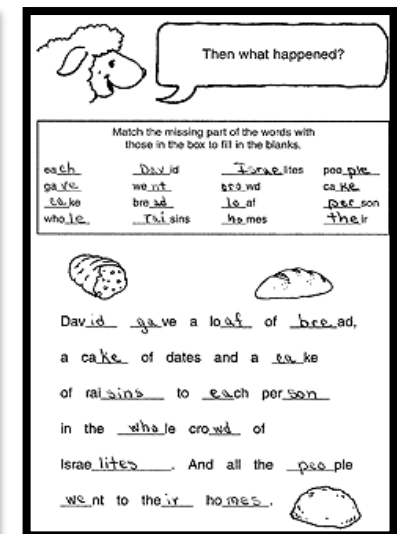 Then what happened?
Match the missing part of the words with
those in the box to fill in the blanks.
each David Israelites people
gave went crowd cake
cake bread loaf person
whole raisins homes their
David gave a loaf of bread,
a cake of dates and a cake
of raisins to each person
in the whole crowd of
Israelites. And all the people
went to their homes.